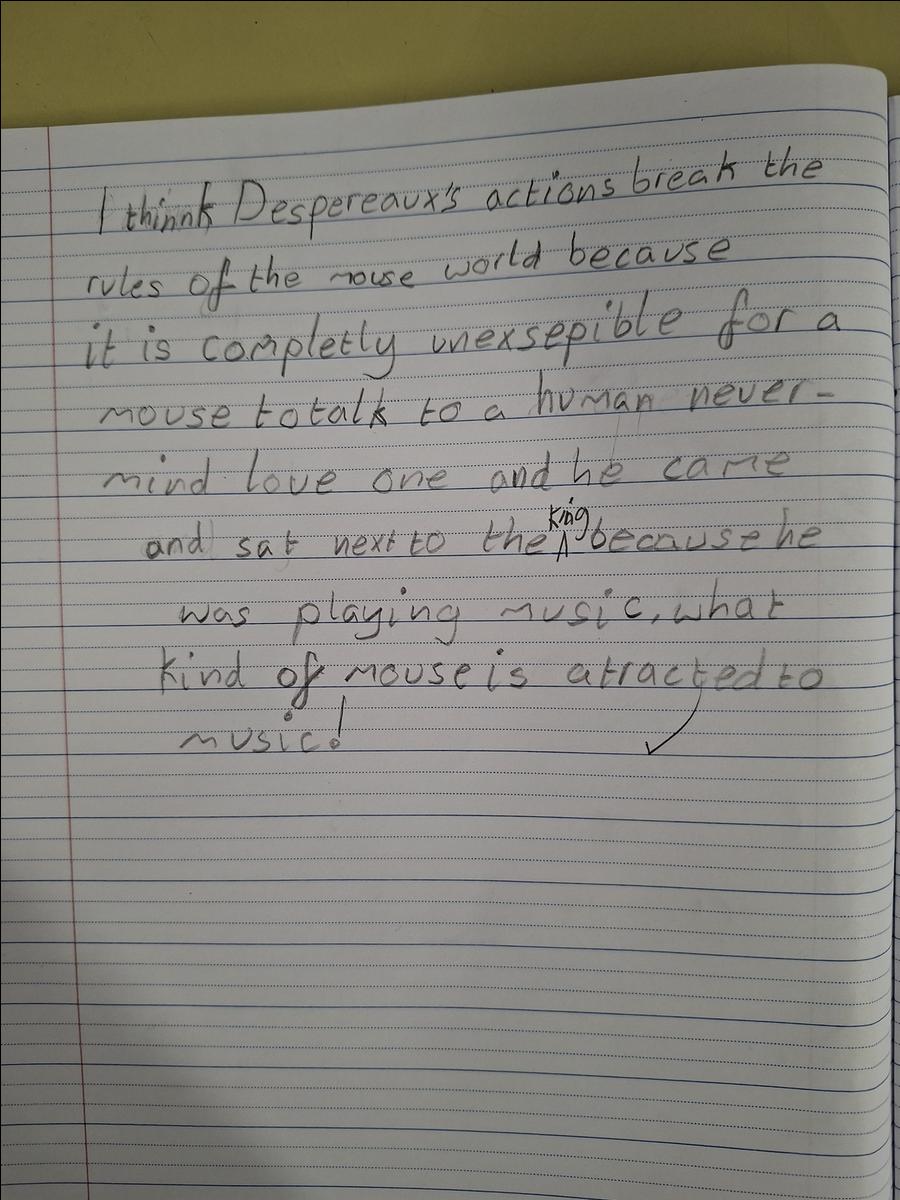 I thinnk Despereaux's actions break the
rules of the mouse world because
it is completly unexsepible for a
mouse to talk to a human never-
mind love one and he came
and sat next to the king because he
was playing music, what
kind of mouse is atracted to
music!